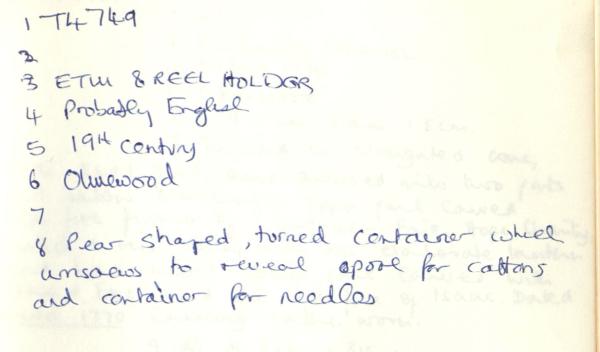 1 T4749
2
3 ETUI & REEL HOLDER
4 Probably English
5 19th Century
6 Olivewood
7
8 Pear shaped, turned container which
unscrews to reveal spool for cottons
and container for needles